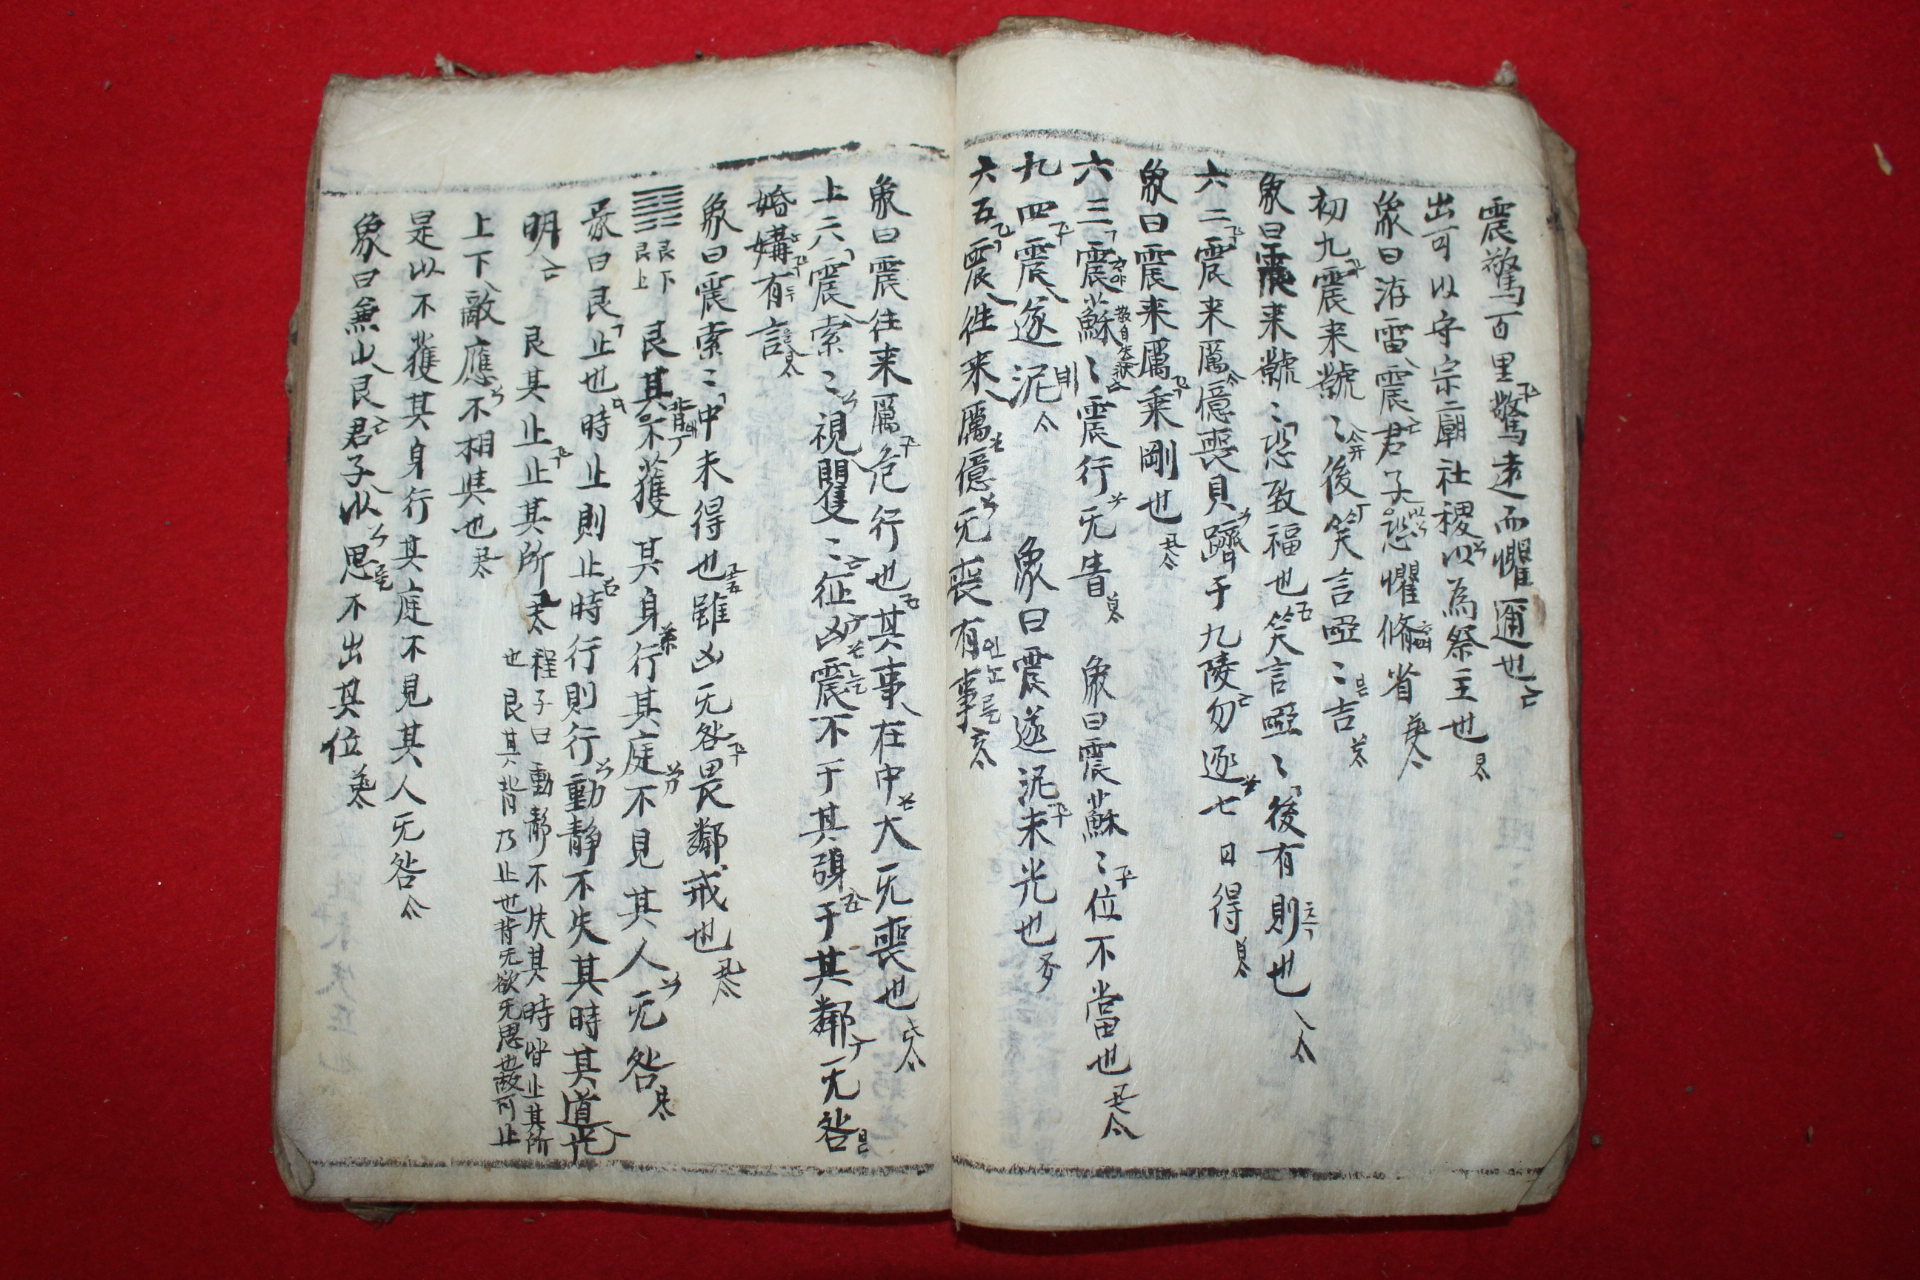 震驚百里驚遠而懼邇也
出可以守宗廟社稷以為祭主也
象曰洊雷震君子恐懼脩省
初九震来虩〻後笑言啞〻吉
象曰震来虩〻恐致福也笑言啞〻後有則也
六二震来厲億喪貝躋于九陵勿逐七日得
象曰震来厲乗剛也
六三震蘇〻震行无眚 象曰震蘇〻位不當也
九四震遂泥 象曰震遂泥未光也
六五震往来厲億无喪有事
象曰震往来厲危行也其事在中大无喪也
上六震索〻視矍〻征凶震不于其躬于其鄰无咎
婚媾有言
象曰震索〻中未得也雖凶无咎畏鄰戒也
䷳ 艮下艮上 艮其背不獲其身行其庭不見其人无咎
彖曰艮止也時止則止時行則行動静不失其時其道光
明 艮其止止其所 程子曰動静不失其時皆止其所
也艮其背乃止也背无欲无思也故可止
上下敵應不相與也
是以不獲其身行其庭不見其人无咎
象曰兼山艮君子以思不出其位